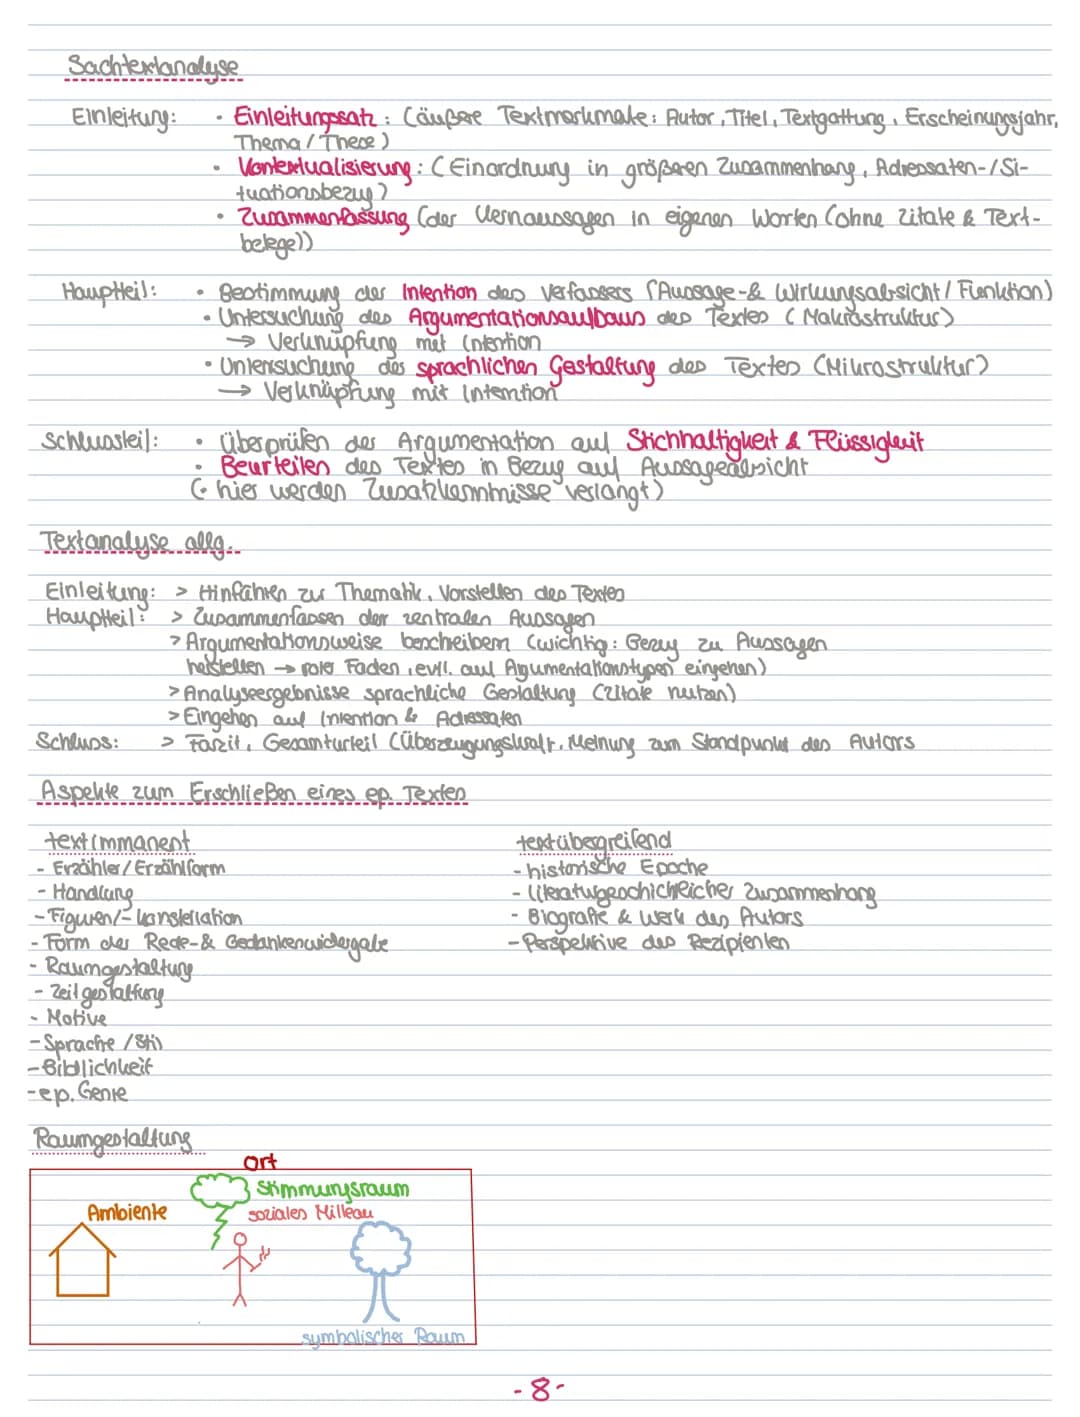 Sachtextanalyse
Einleitung: • Einleitungssatz: (äußere Textmerkmale: Autor, Titel, Textgattung, Erscheinungsjahr,
Thema / These)
• Kontextualisierung: (Einordnung in größeren Zusammenhang, Adressaten-/Si-
tuationsbezug)
• Zusammenfassung (der Kernaussagen in eigenen Worten (ohne Zitate & Text-
belege))
Hauptteil: • Bestimmung der Intention des Verfassers (Aussage-& Wirkungsabsicht / Funktion)
• Untersuchung des Argumentationsaufbaus des Textes (Makrostruktur)
→ Verknüpfung mit Intention
• Untersuchung der sprachlichen Gestaltung des Textes (Mikrostruktur)
→ Verknüpfung mit Intention
Schlussteil: • Überprüfen der Argumentation auf Stichhaltigkeit & Flüssigkeit
• Beurteilen des Textes in Bezug auf Aussageabsicht
(: hier werden Zusatzkenntnisse verlangt)
Textanalyse allg.
Einleitung: > Hinführen zur Thematik, Vorstellen des Textes
Hauptteil: > Zusammenfassen der zentralen Aussagen
> Argumentationsweise bescheibem (wichtig: Bezug zu Aussagen
herstellen → roter Faden, evtl. auf Argumentationstypen eingehen)
> Analyseergebnisse sprachliche Gestaltung (Zitate nutzen)
> Eingehen auf Intention & Adressaten
Schluss: > Fazit, Gesamturteil (Überzeugungskraft, Meinung zum Standpunkt des Autors
Aspekte zum Erschließen eines ep. Textes
textimmanent
- Erzähler/Erzählform
- Handlung
- Figuren/-konstellation
- Form der Rede-& Gedankenwidergabe
- Raumgestaltung
- Zeitgestaltung
- Motive
- Sprache /Stil
- Bildlichkeit
- ep. Genre
textübergreifend
- historische Epoche
- literaturgeschichtlicher Zusammenhang
- Biografie & Werk des Autors
- Perspektive des Rezipienten
Raumgestaltung
Ort
Stimmungsraum
Ambiente
soziales Milleau
symbolischer Raum
- 8 -